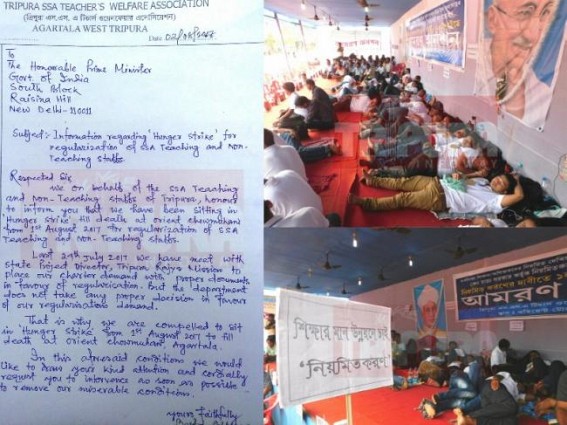 TRIPURA SSA TEACHER'S WELFARE ASSOCIATION
AGARTALA WEST TRIPURA
Date 02/08/2017
To
The Honorable Prime Minister
Govt. of India
South Block
Raisina Hill
New Delhi-110011
Subject:- Information regarding 'Hunger strike' for
regularization of SSA Teaching and Non-
Teaching staffs.
Respected Sir
We on behalf of the SSA Teaching
and Non-Teaching staffs of Tripura, honour
to inform you that we have been sitting in
'Hunger strike' till death at orient chowmuhani
from 1st August 2017 for regularization of SSA
Teaching and Non-Teaching staffs.
Last 29th July 2017 we have meet with
state Project Director, Tripura Rajya Mission to
place our charter demand with proper documents
in favour of regularisation. But the department
does not take any proper decision in favour
of our regularisation demand.
That is why we are compelled to sit
in 'Hunger strike' from 1st August 2017 to till
death at orient chowmuhani Agartala.
In this aforesaid conditions we would
like to draw your kind attention and cordially
request you to intervence as soon as possible
to remove our miserable conditions.
yours faithfully
শিক্ষার মান উন্নয়নে চাই
'নিয়মিতকরণ'
আমরণ